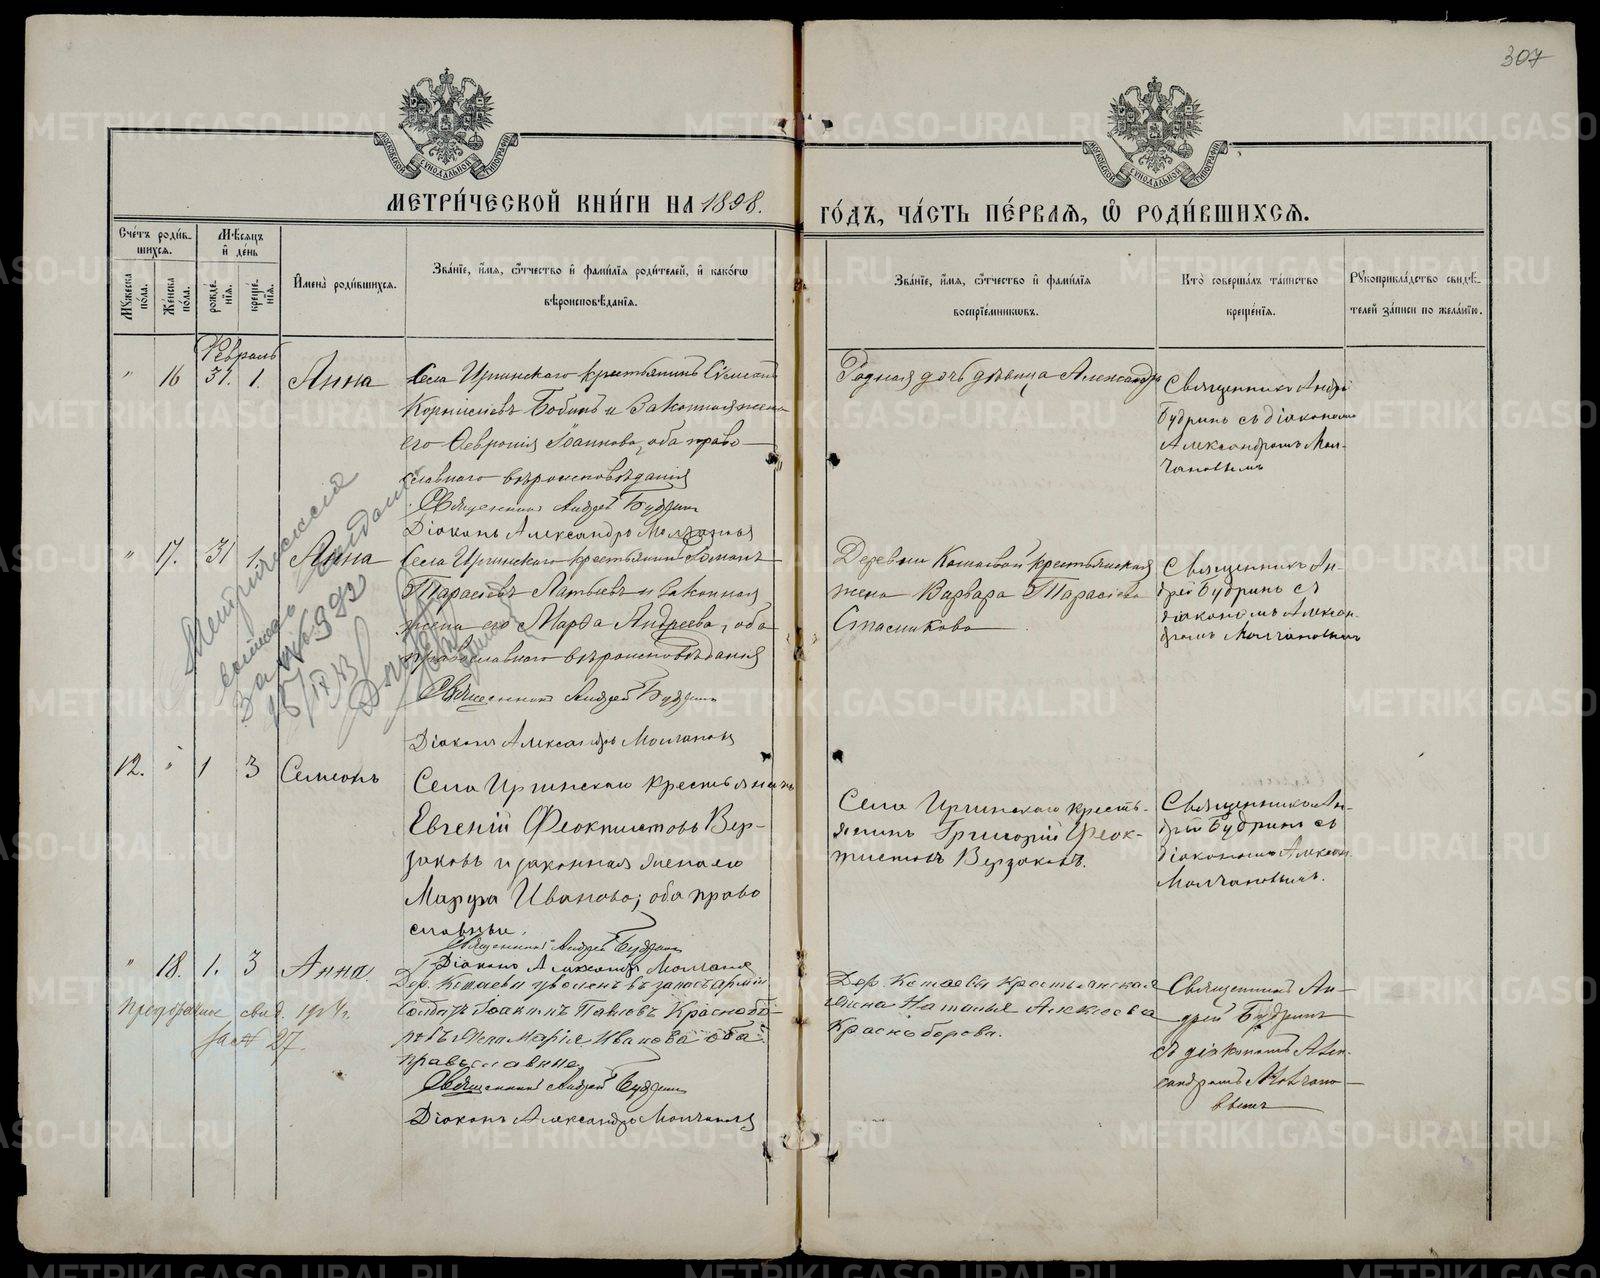 307
МОСКОВСКОЙ СѴНОДАЛЬНОЙ ТИПОГРАФІИ
МОСКОВСКОЙ СѴНОДАЛЬНОЙ ТИПОГРАФІИ
МЕТРИ́ЧЕСКОЙ КНИ́ГИ НА 1898.
ГО́ДЪ, ЧА́СТЬ ПЕ́РВАЯ, Ѽ РОДИ́ВШИХСЯ.
Сче́тъ роди́в-
шихся.
Мѣсяцъ
и де́нь
Мꙋжеска
по́ла.
Же́нска
по́ла.
рожде́-
нїя.
креще́-
нїя.
Имена̀ роди́вшихся.
Зва́нїе, и́мя, ѻ҆́тчество и фами́лїя роди́телей, и како́гѡ
вѣроисповѣ́данїя.
Зва́нїе, и́мя, ѻ҆́тчество и фами́лїя
воспрїе́мникѡвъ.
Кто̀ соверша́лъ та́инство
креще́нїя.
Рꙋкоприкла́дство свидѣ́-
телей за́писи по жела́нїю.
Февраль
" 16 31. 1. Анна
Села Иргинскаго крестьянинъ
Корниловъ Бобинъ и законная жена
его Февронія Іоаннова, оба право-
славнаго вѣроисповѣданія
Священникъ Андрей Будринъ
Діаконъ Александръ Молчановъ
Родная дочь дѣвица Александра
Священникъ Андрей
Будринъ съ діакономъ
Александромъ Мол-
чановымъ
" 17. 31 1. Анна
Села Иргинскаго крестьянинъ Романъ
Тарасовъ и законная
жена его Марѳа Андреева, оба
православнаго вѣроисповѣданія
Священникъ Андрей Будринъ
Діаконъ Александръ Молчановъ
Деревни крестьянская
жена Варвара Тарасова
Священникъ Ан-
дрей Будринъ съ
діакономъ Алексан-
дромъ Молчановымъ
Метрическая
выдана
за № 992
12. " 1 3 Симеонъ
Села Иргинскаго крестьянинъ
Евгеній Феоктистовъ Вер-
заковъ и законная жена его
Марфа Иванова; оба право
славные.
Священникъ Андрей Будринъ
Діаконъ Александръ Молчановъ
Села Иргинскаго кресть-
янинъ Григорій Феок-
тистовъ Верзаковъ.
Священникъ Ан-
дрей Будринъ съ
діакономъ Алексан.
Молчановымъ.
" 18. 1. 3 Анна
Дер. Котаевы уволенъ въ запасъ арміи
солдатъ Іоакимъ Павловъ Краснобо-
ровъ жена Марія Иванова оба
православные
Священникъ Андрей Будринъ
Діаконъ Александръ Молчановъ
Дер. Котаевы крестьянская
жена Наталья Алексеева
Красноборова.
Священникъ Ан-
дрей Будринъ
съ діакономъ Алек-
сандромъ Молчано-
вымъ
свид.
за № 27.
METRIKI.GASO-URAL.RU